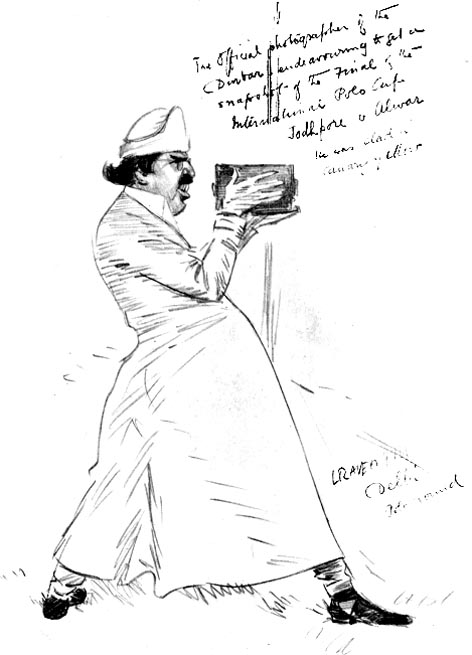 The Official photographer of the
Durbar endeavouring to get a
snapshot of the Final of the
International Polo Cup
Jodhpore v Ulwar
He was clad in
canary yellow
LRAVEN HILL
Delhi